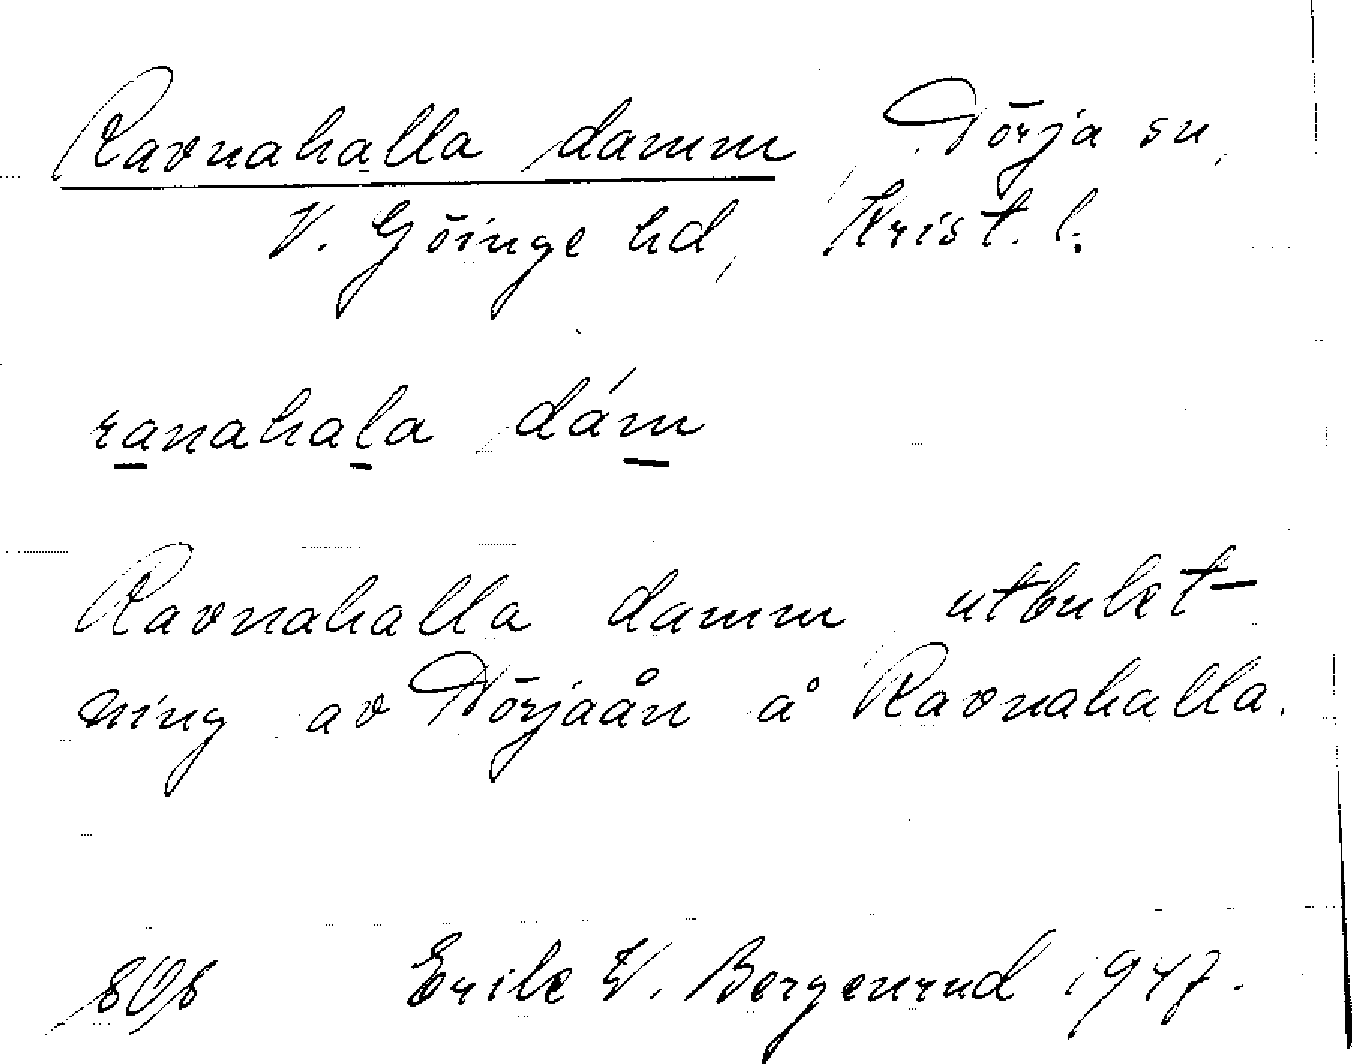 Ravnahalla damm, Nörja sn,
V. Göinge hd, Krist. l.
ranahala dám
Ravnahalla damm utbukt-
ning av Nörjaån å Ravnahalla.
808 Erik W. Bergenrud 1947.